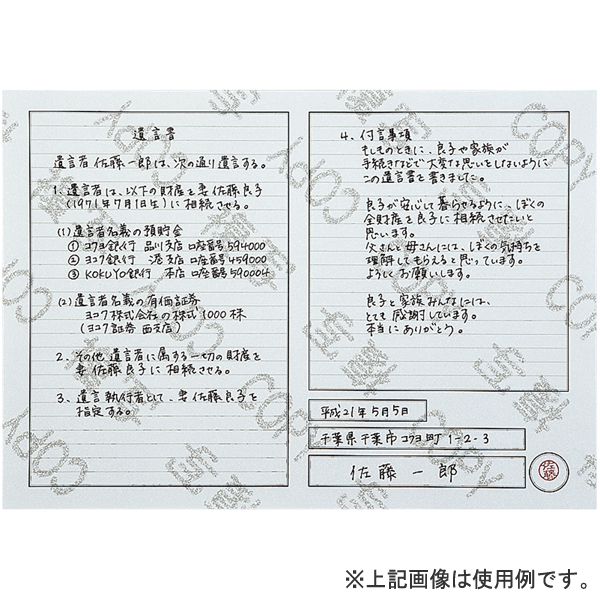 遺言書
遺言者 佐藤一郎は、次の通り遺言する。
1、遺言者は、以下の財産を妻 佐藤良子
(1971年7月1日生)に相続させる。
(1)遺言者名義の預貯金
① コクヨ銀行 品川支店 口座番号594000
② ヨコク銀行 港支店 口座番号459000
③ KOKUYO銀行 本店 口座番号590004
(2)遺言者名義の有価証券
ヨコク株式会社の株式 1000株
(ヨコク証券 西支店)
2、その他 遺言者に属する一切の財産を
妻 佐藤良子に 相続させる。
3、遺言執行者として、妻 佐藤良子を
指定する。
4、付言事項
もしものときに、良子や家族が
手続きなどで大変な思いをしないように
この遺言書を書きました。
良子が安心して暮らせるように、ぼくの
全財産を良子に相続させたいと
思います。
父さんと母さんには、ぼくの気持ちを
理解してもらえると思っています。
よろしくお願いします。
良子と家族みんなには、
とても 感謝しています。
本当にありがとう。
平成21年5月5日
千葉県千葉市コクヨ町1-2-3
佐藤一郎
佐藤
複写 COPY
※上記画像は使用例です。